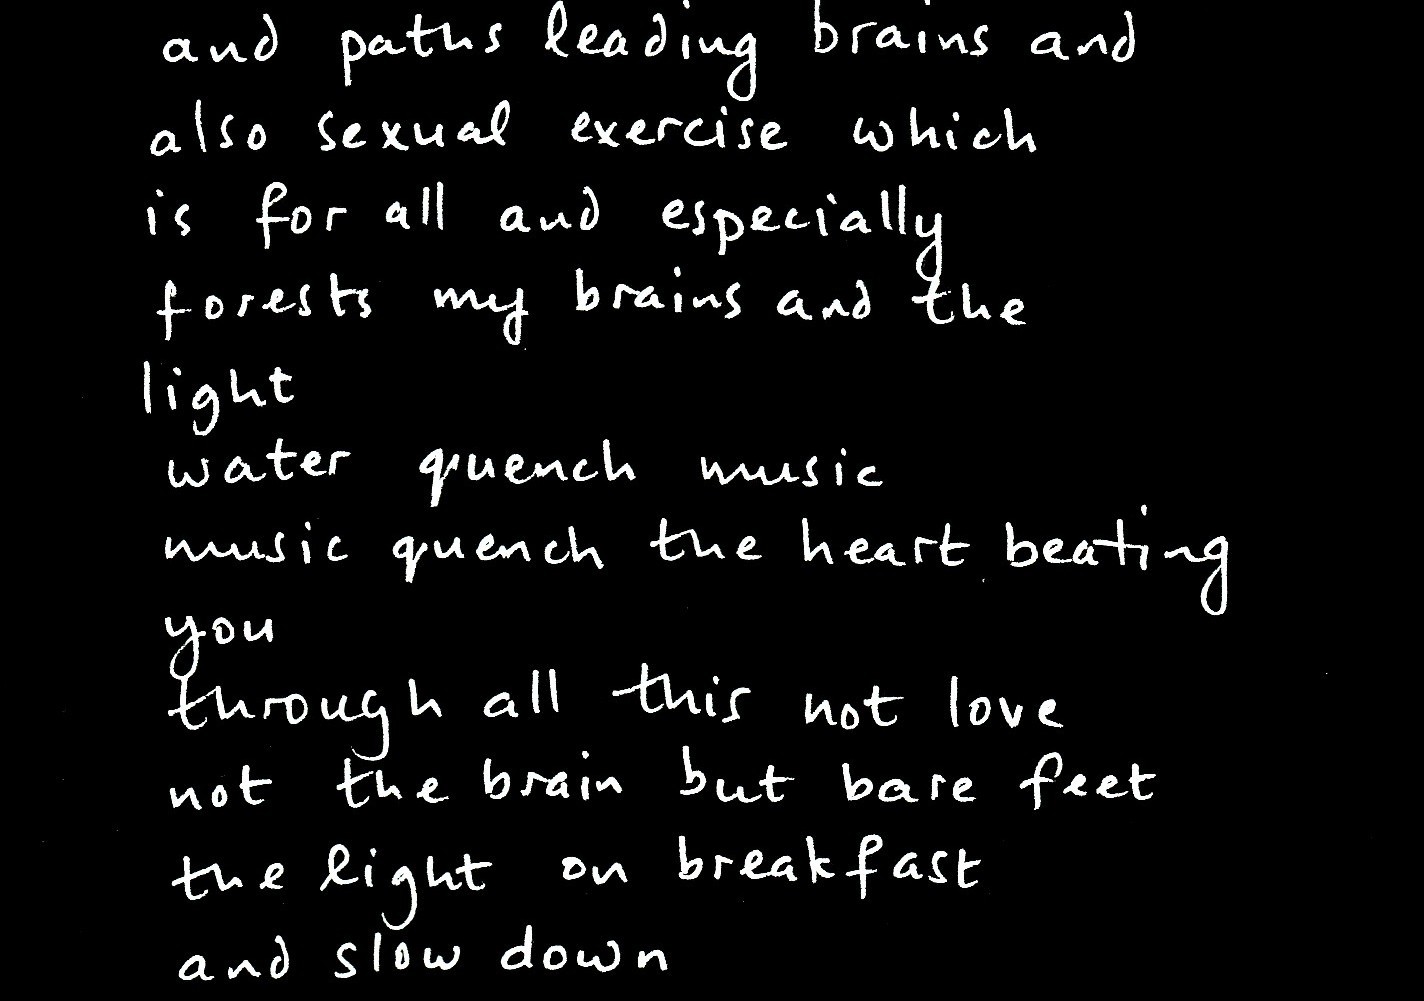 and paths leading brains and
also sexual exercise which
is for all and especially
forests my brains and the
light
water quench music
music quench the heart beating
you
through all this not love
not the brain but bare feet
the light on breakfast
and slow down